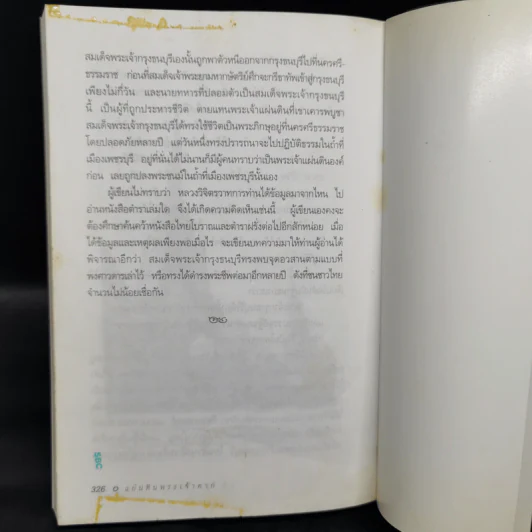 สมเด็จพระเจ้ากรุงธนบุรีเองนั้นถูกพาตัวหนีออกจากกรุงธนบุรีไปที่นครศรี-
ธรรมราช ก่อนที่สมเด็จเจ้าพระยามหากษัตริย์ศึกจะกรีธาทัพเข้าสู่กรุงธนบุรี
เพียงไม่กี่วัน และนายทหารที่ปลอมตัวเป็นสมเด็จพระเจ้ากรุงธนบุรี
นี้ เป็นผู้ที่ถูกประหารชีวิต ตายแทนพระเจ้าแผ่นดินที่เขาเคารพบูชา
สมเด็จพระเจ้ากรุงธนบุรีได้ทรงใช้ชีวิตเป็นพระภิกษุอยู่ที่นครศรีธรรมราช
โดยปลอดภัยหลายปี แต่วันหนึ่งทรงปรารถนาจะไปปฏิบัติธรรมในถ้ำที่
เมืองเพชรบุรี อยู่ที่นั่นได้ไม่นานก็มีผู้คนทราบว่าเป็นพระเจ้าแผ่นดินองค์
ก่อน เลยถูกปลงพระชนม์ในถ้ำที่เมืองเพชรบุรีนั้นเอง
ผู้เขียนไม่ทราบว่า หลวงวิจิตรวาทการท่านได้ข้อมูลมาจากไหน ไป
อ่านหนังสือตำราเล่มใด จึงได้เกิดความคิดเห็นเช่นนี้ ผู้เขียนเองคงจะ
ต้องศึกษาค้นคว้าหนังสือไทยโบราณและตำราฝรั่งต่อไปอีกสักหน่อย เมื่อ
ได้ข้อมูลและเหตุผลเพียงพอเมื่อไร จะเขียนบทความมาให้ท่านผู้อ่านได้
พิจารณาอีกว่า สมเด็จพระเจ้ากรุงธนบุรีทรงพบจุดอวสานตามแบบที่
พงศาวดารเล่าไว้ หรือทรงได้ดำรงพระชีพต่อมาอีกหลายปี ดังที่ชนชาวไทย
จำนวนไม่น้อยเชื่อกัน
326 แผ่นดินพระเจ้าตาก